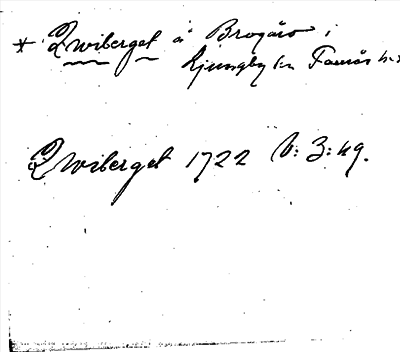 * Qwiberget å Brogård i
Ljungby sn Faurås hd
Qwiberget 1722 V: 3: 49.